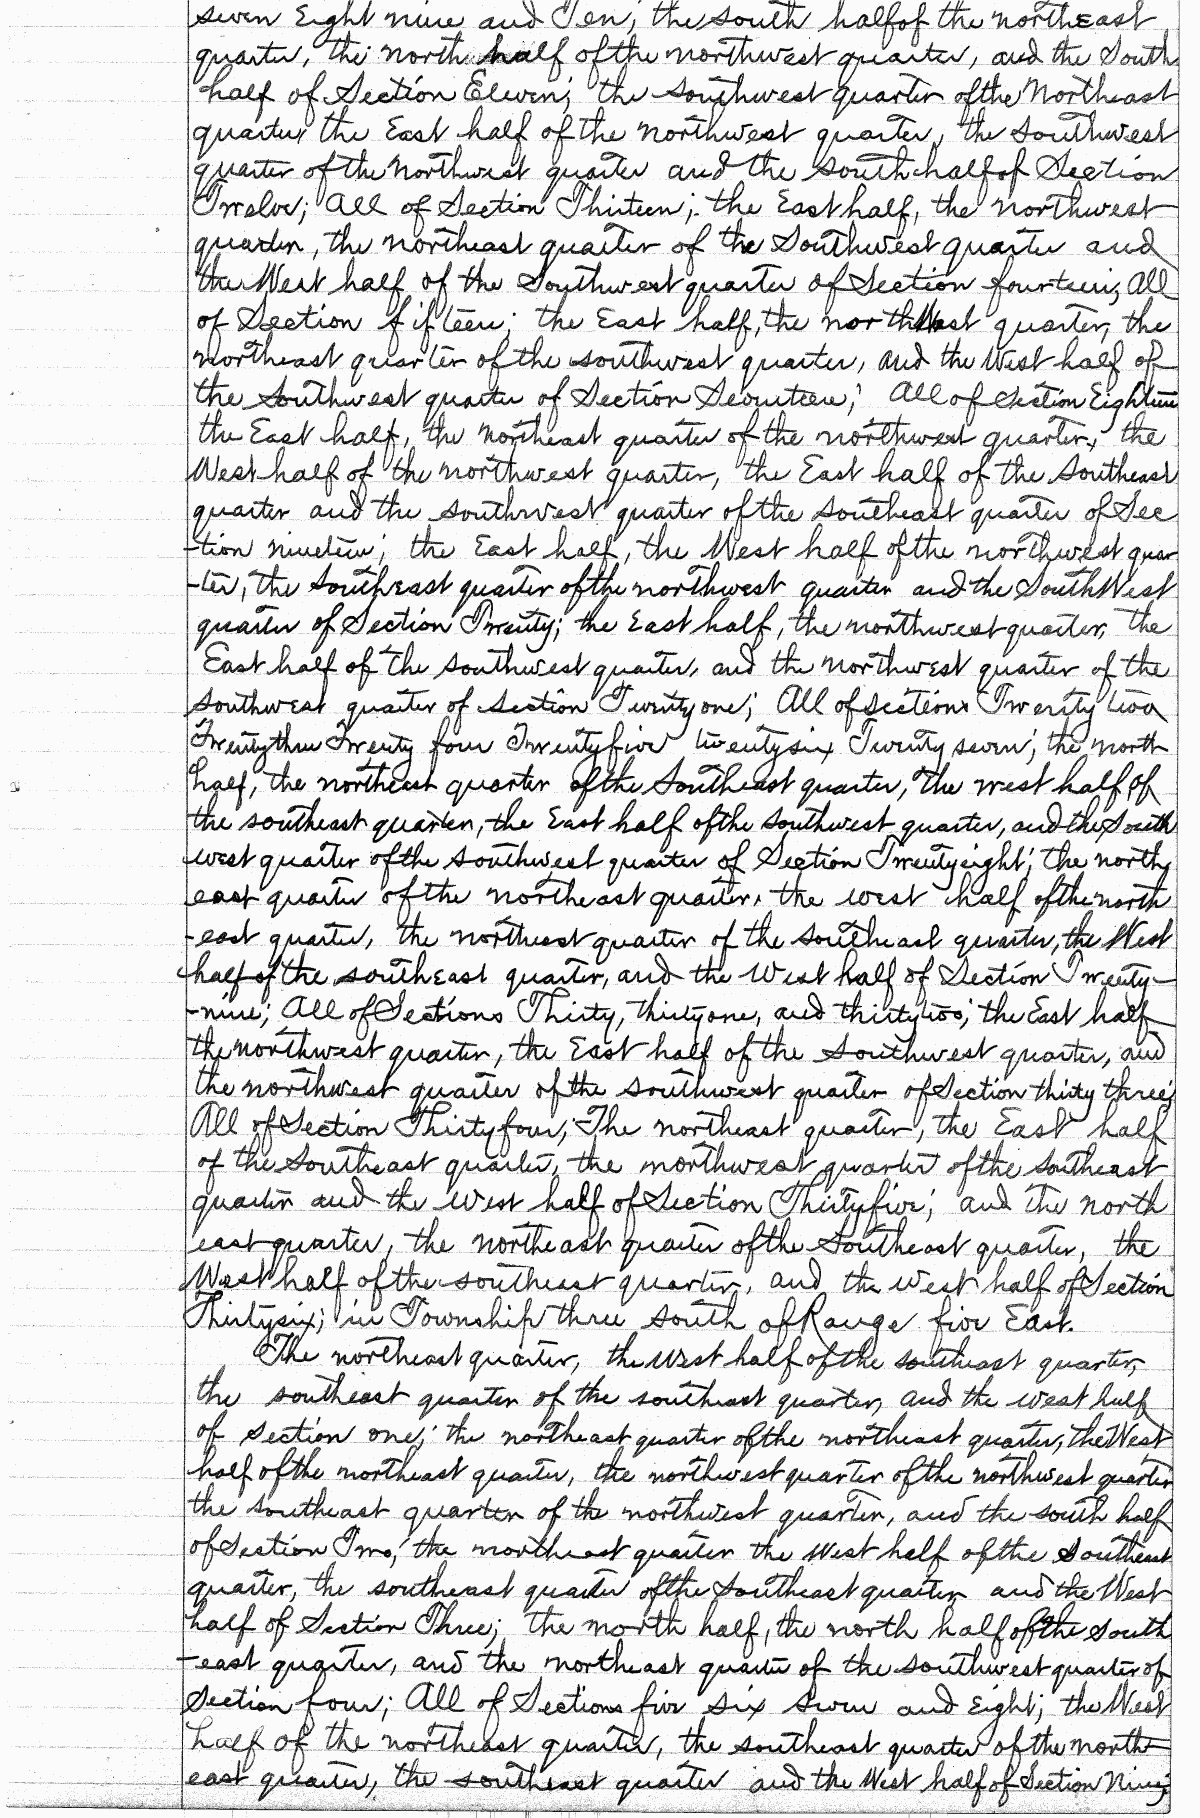 seven Eight nine and Ten; the south half of the northeast
quarter, the north half of the northwest quarter, and the South
half of Section Eleven; the southwest quarter of the Northeast
quarter, the East half of the northwest quarter, the southwest
quarter of the Northwest quarter and the south half of Section
Twelve; All of Section Thirteen; the East half, the northwest
quarter, the northeast quarter of the Southwest quarter and
the West half of the Southwest quarter of Section fourteen; All
of Section fifteen; the East half, the northWest quarter, the
northeast quarter of the southwest quarter, and the West half of
the Southwest quarter of Section Seventeen; All of Section Eighteen
the East half, the Northeast quarter of the northwest quarter, the
West half of the northwest quarter, the East half of the Southeast
quarter and the southwest quarter of the southeast quarter of Sec
-tion nineteen; the East half, the West half of the northwest quar
-ter, the southeast quarter of the northwest quarter and the SouthWest
quarter of Section Twenty; the East half, the northwest quarter, the
East half of the southwest quarter, and the northwest quarter of the
southwest quarter of section Twenty one; All of sections Twenty two
Twenty three Twenty four Twenty five twenty six Twenty seven; the north
half, the northeast quarter of the Southeast quarter, the west half of
the southeast quarter, the East half of the Southwest quarter, and the South
west quarter of the southwest quarter of Section Twenty eight; the north
east quarter of the northeast quarter, the west half of the north
-east quarter, the northeast quarter of the southeast quarter, the West
half of the southeast quarter, and the West half of Section Twenty-
-nine; All of Sections Thirty, thirty one, and thirty two; the East half
the northwest quarter, the East half of the Southwest quarter, and
the northwest quarter of the southwest quarter of Section thirty three;
All of Section Thirty four; The northeast quarter, the East half
of the Southeast quarter, the northwest quarter of the southeast
quarter and the West half of Section Thirty five; and the north
east quarter, the northeast quarter of the Southeast quarter, the
West half of the southeast quarter, and the west half of Section
Thirty six; in Township three south of Range five East.
The northeast quarter, the West half of the southeast quarter,
the southeast quarter of the southeast quarter, and the west half
of Section one; the northeast quarter of the northeast quarter, the West
half of the northeast quarter, the northwest quarter of the northwest quarter
the southeast quarter of the northwest quarter, and the south half
of Section Two; the northeast quarter the West half of the Southeast
quarter, the southeast quarter of the Southeast quarter and the West
half of Section Three; the north half, the north half of the South
-east quarter, and the northeast quarter of the southwest quarter of
Section four; All of Sections five six seven and Eight; the West
half of the northeast quarter, the southeast quarter of the north-
east quarter, the southeast quarter and the West half of Section Nine;